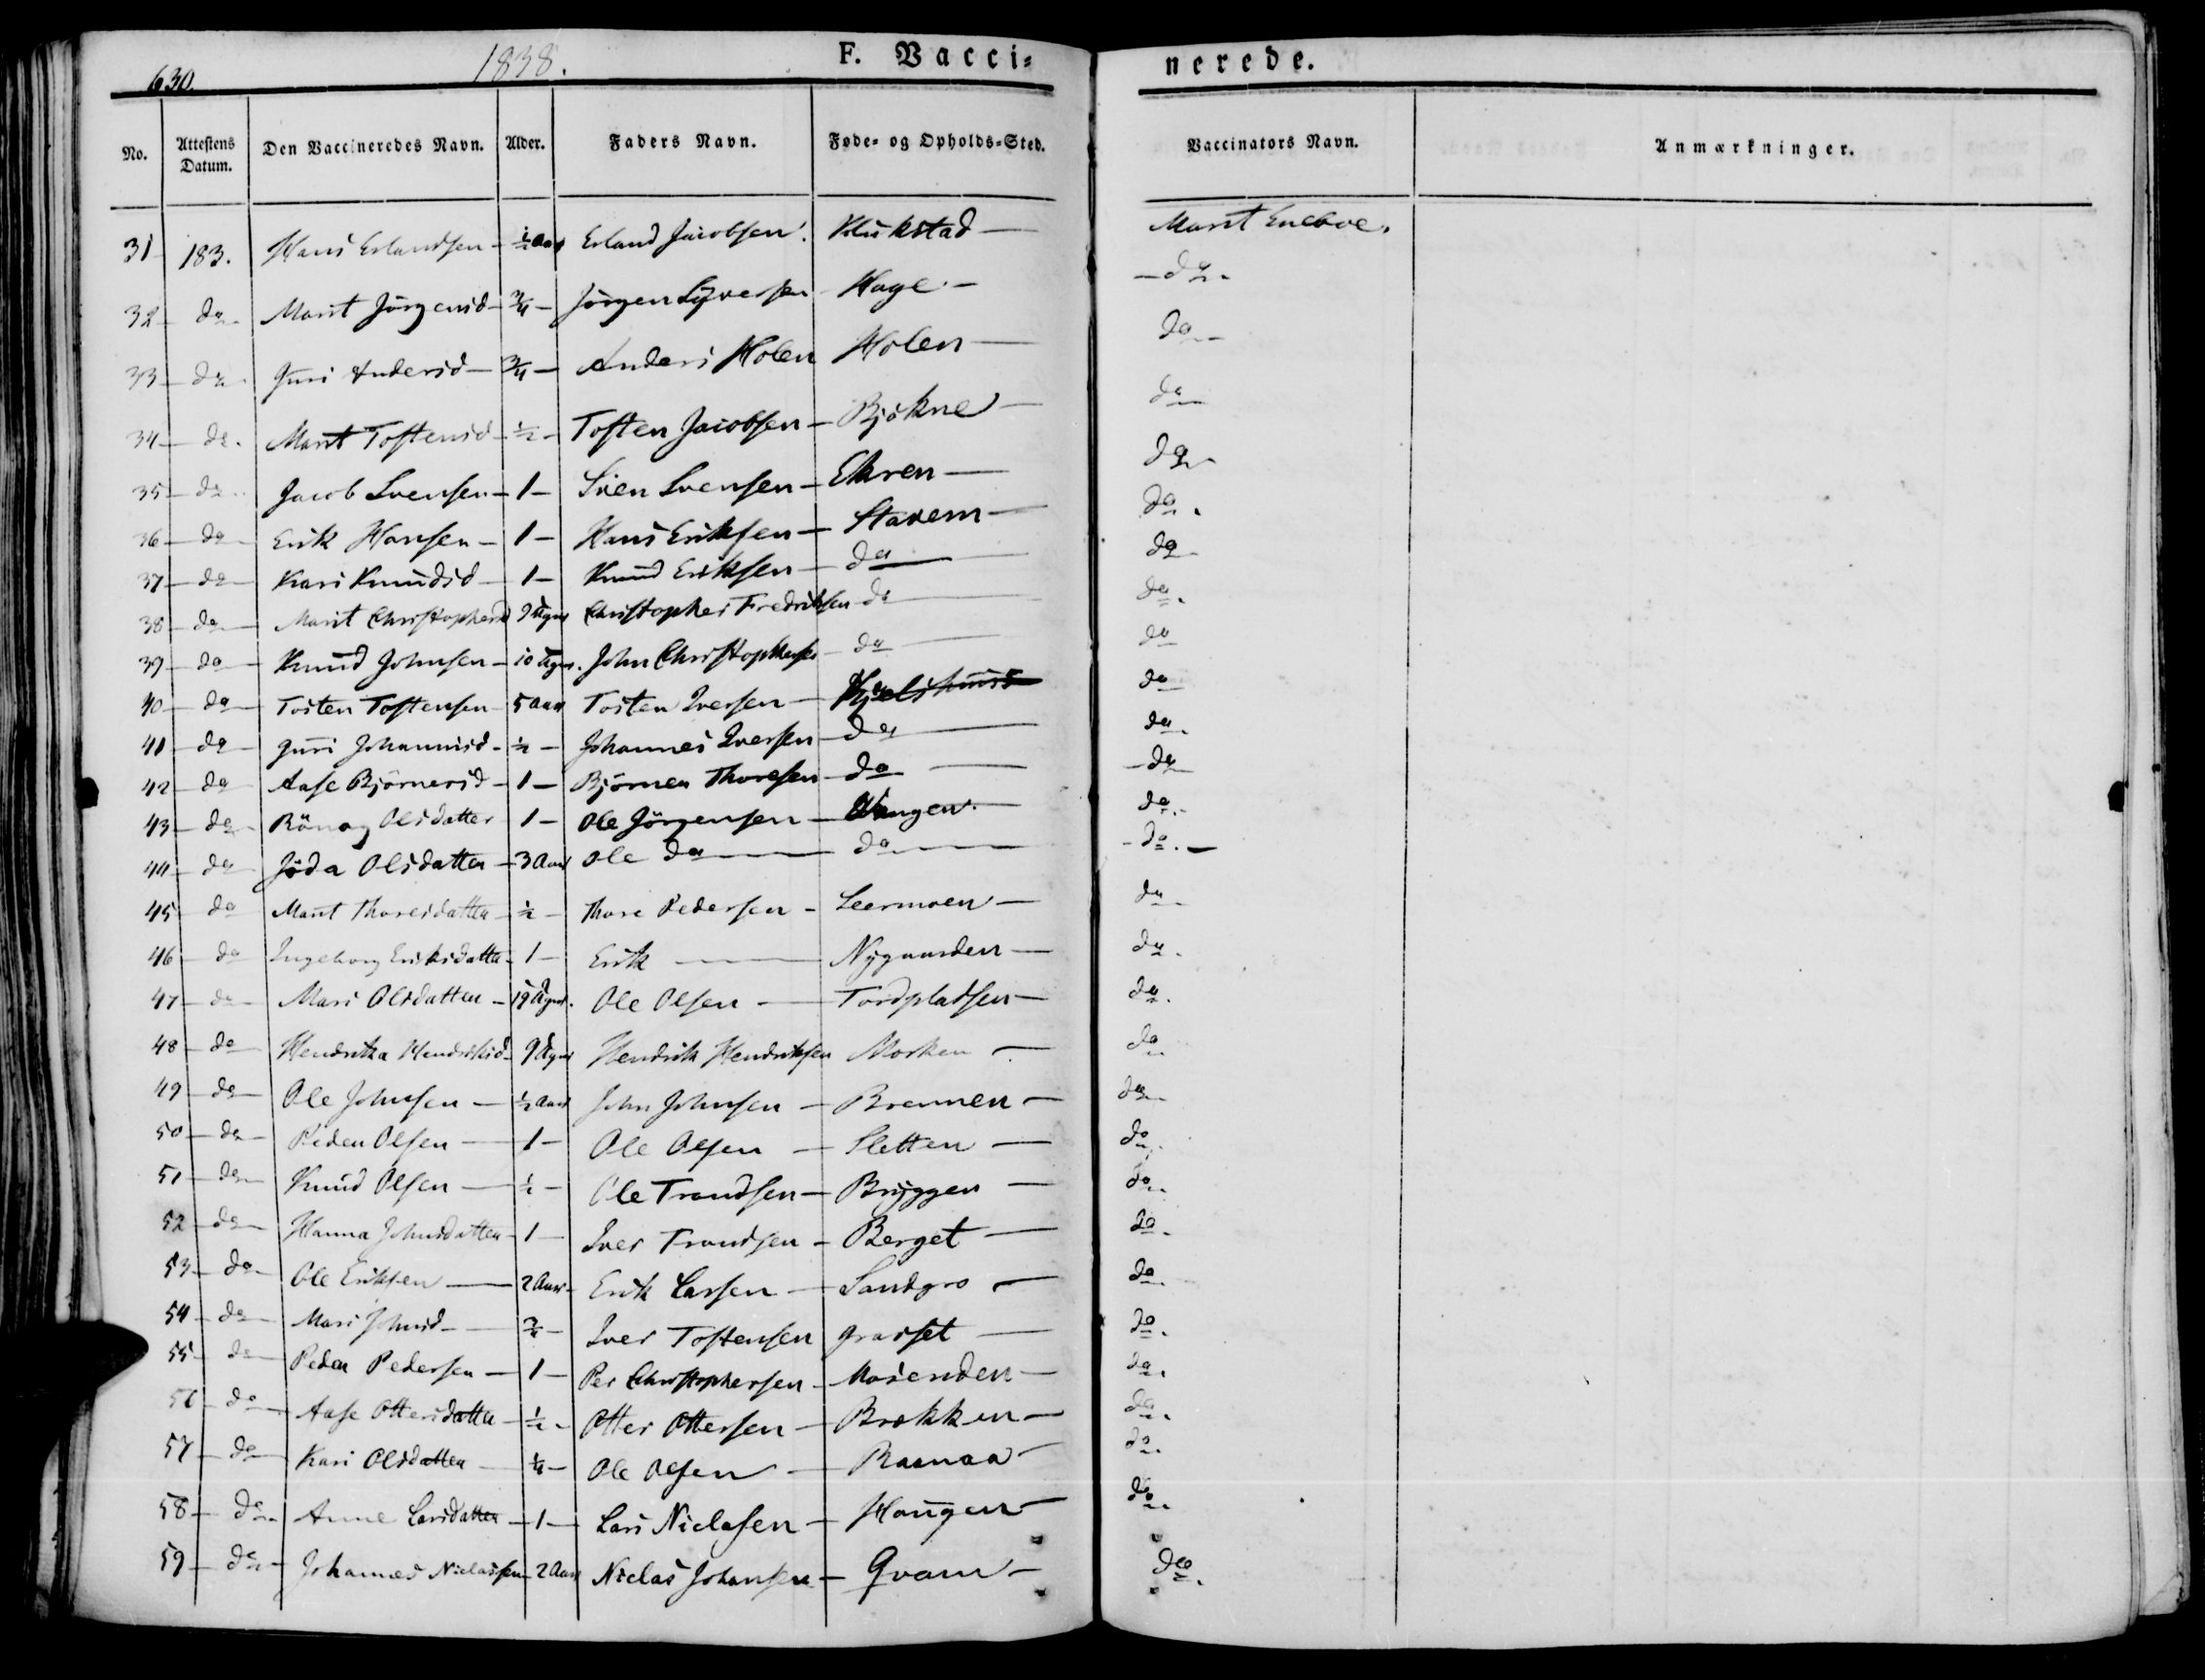 630. 1838. F. Vacci- nerede.
No. Attestens Datum. Den Vaccineredes Navn. Alder. Faders Navn. Føde- og Opholds-Sted. Vaccinators Navn. Anmærkninger.
31 183. Hans Erlandsen - ½ Aar Erland Jacobsen. Klukstad - Marit Eneboe.
32 - do - Marit Jörgensd - ¾ - Jörgen Syversen Hage - - do -
33 - do - Guri Andersd - ¾ - Anders Holen Holen - do -
34 - do - Marit Tostensd - ½ - Tosten Jacobsen - Bjökne - do -
35 - do - Jacob Svensen - 1 - Sven Svensen - Ekren - do -
36 - do - Erik Hansen - 1 - Hans Eriksen - Stavem - do.
37 - do - Kari Knudsd - 1 - Knud Eriksen - do - do -
38 - do - Marit Christophersd 9 Ugus Christopher Fredriksen - do - do.
39 - do - Knud Johnsen - 10 Ugus. John Christophersen - do - do
40 - do - Tosten Tostensen 5 Aar Tosten Iversen - Kjelshuus - do
41 - do - Guri Johannisd - ½ - Johannes Iversen - do - do.
42 - do - Aase Björnersd - 1 - Björner Thoresen - do - - do -
43 - do - Rönog Olsdatter 1 - Ole Jörgensen - Wangen - do -
44 - do - Jöda Olsdatter - 3 Aar Ole do - do - - do. -
45 - do Marit Thoresdatter - ½ - Thore Pedersen - Leermoen - do -
46 do Ingeborg Eriksdatter - 1 - Erik - Nygaarden - do -
47 - do - Mari Olsdatter - 19 Ugus. Ole Olsen - Tordpladsen - do.
48 - do - Hendrikka Hendriksd - 9 Ugus Hendrik Hendriksen Morken - do
49 - do - Ole Johnsen - ½ Aar John Johnsen - Brennen - do -
50 - do - Peder Olsen - 1 - Ole Olsen - Sletten - do.
51 - do - Knud Olsen - ½ - Ole Trondsen - Bryggen - do.
52 - do - Hanna Johnsdatter - 1 - Iver Trondsen - Berget - do.
53 - do - Ole Eriksen - 2 Aar - Erik Larsen - Sandgro - do.
54 - do - Mari Johnsd - ¾ - Iver Tostensen Grasset - do.
55 - do - Peder Pedersen - 1 - Per Christophersen - Mosenden - do.
56 - do - Aase Ottersdatter - ½ - Otter Ottersen - Brokken - do.
57 - do - Kari Olsdatter - ¼ - Ole Olsen - Raanaa - do.
58 - do. Anne Larsdatter - 1 - Lars Niclasen - Haugen - do.
59 - do - Johannes Niclassen - 2 Aar Niclas Johansen - Qvam - do.